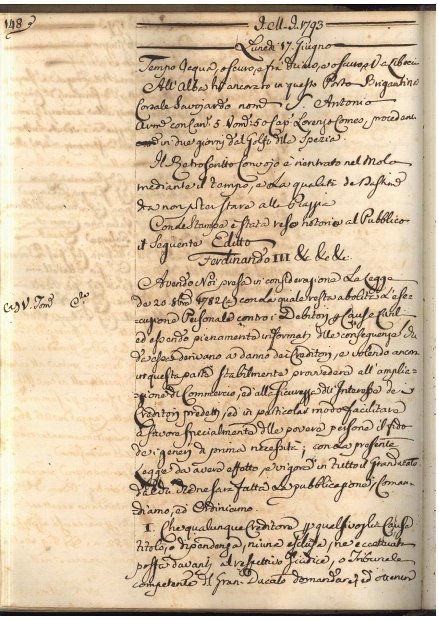 148
D. M. D. 1793
Lunedì 17. Giugno
Tempo acqua, oscuro, e
All'Alba hà ancorato in questo Porto Brigantino
Corsale Savojardo nom. S. Antonio
Arm. con Can. 5 Uom. 50 Cap. Lorenzo Comes, procedente
in due giorni dal Golfo della Spezia.
Il Retroscritto Convojo è rientrato nel Molo
mediante il tempo, e la qualità de Bastim.
da non poter stare alle
Con la Stampa è stato reso notorio al Pubblico
il seguente Editto
Ferdinando III &c. &c. &c.
Avendo Noi preso in considerazione la Legge
de 20. 1782 (a) con la quale resta abolita l'ese-
cuzione Personale contro i Debitori p. Cause Civili
ed essendo pienamente informati delle conseguenze
che derivano a danno dei Creditori, e volendo ancora
in questa parte stabilmente provvedere all'amplia-
zione di Commercio, ed alla sicurezza dell'Interesse de
Creditori predetti, ed in particolar modo facilitare
a favore specialmente delle povere persone il fido
de generi di prima necessità; con la presente
Legge da avere effetto, e vigore in tutto il Granducato
ne sarà fatta la pubblicazione; Coman-
diamo, ed Ordiniamo.
I. Che qualunque Creditore p. qualsivoglia Causa
titolo, o dipendenza, niuna esclusa, ne eccettuata
possa davanti al respettivo Giudice, o Tribunale
competente del Gran-Ducato domandare, ed ottenere